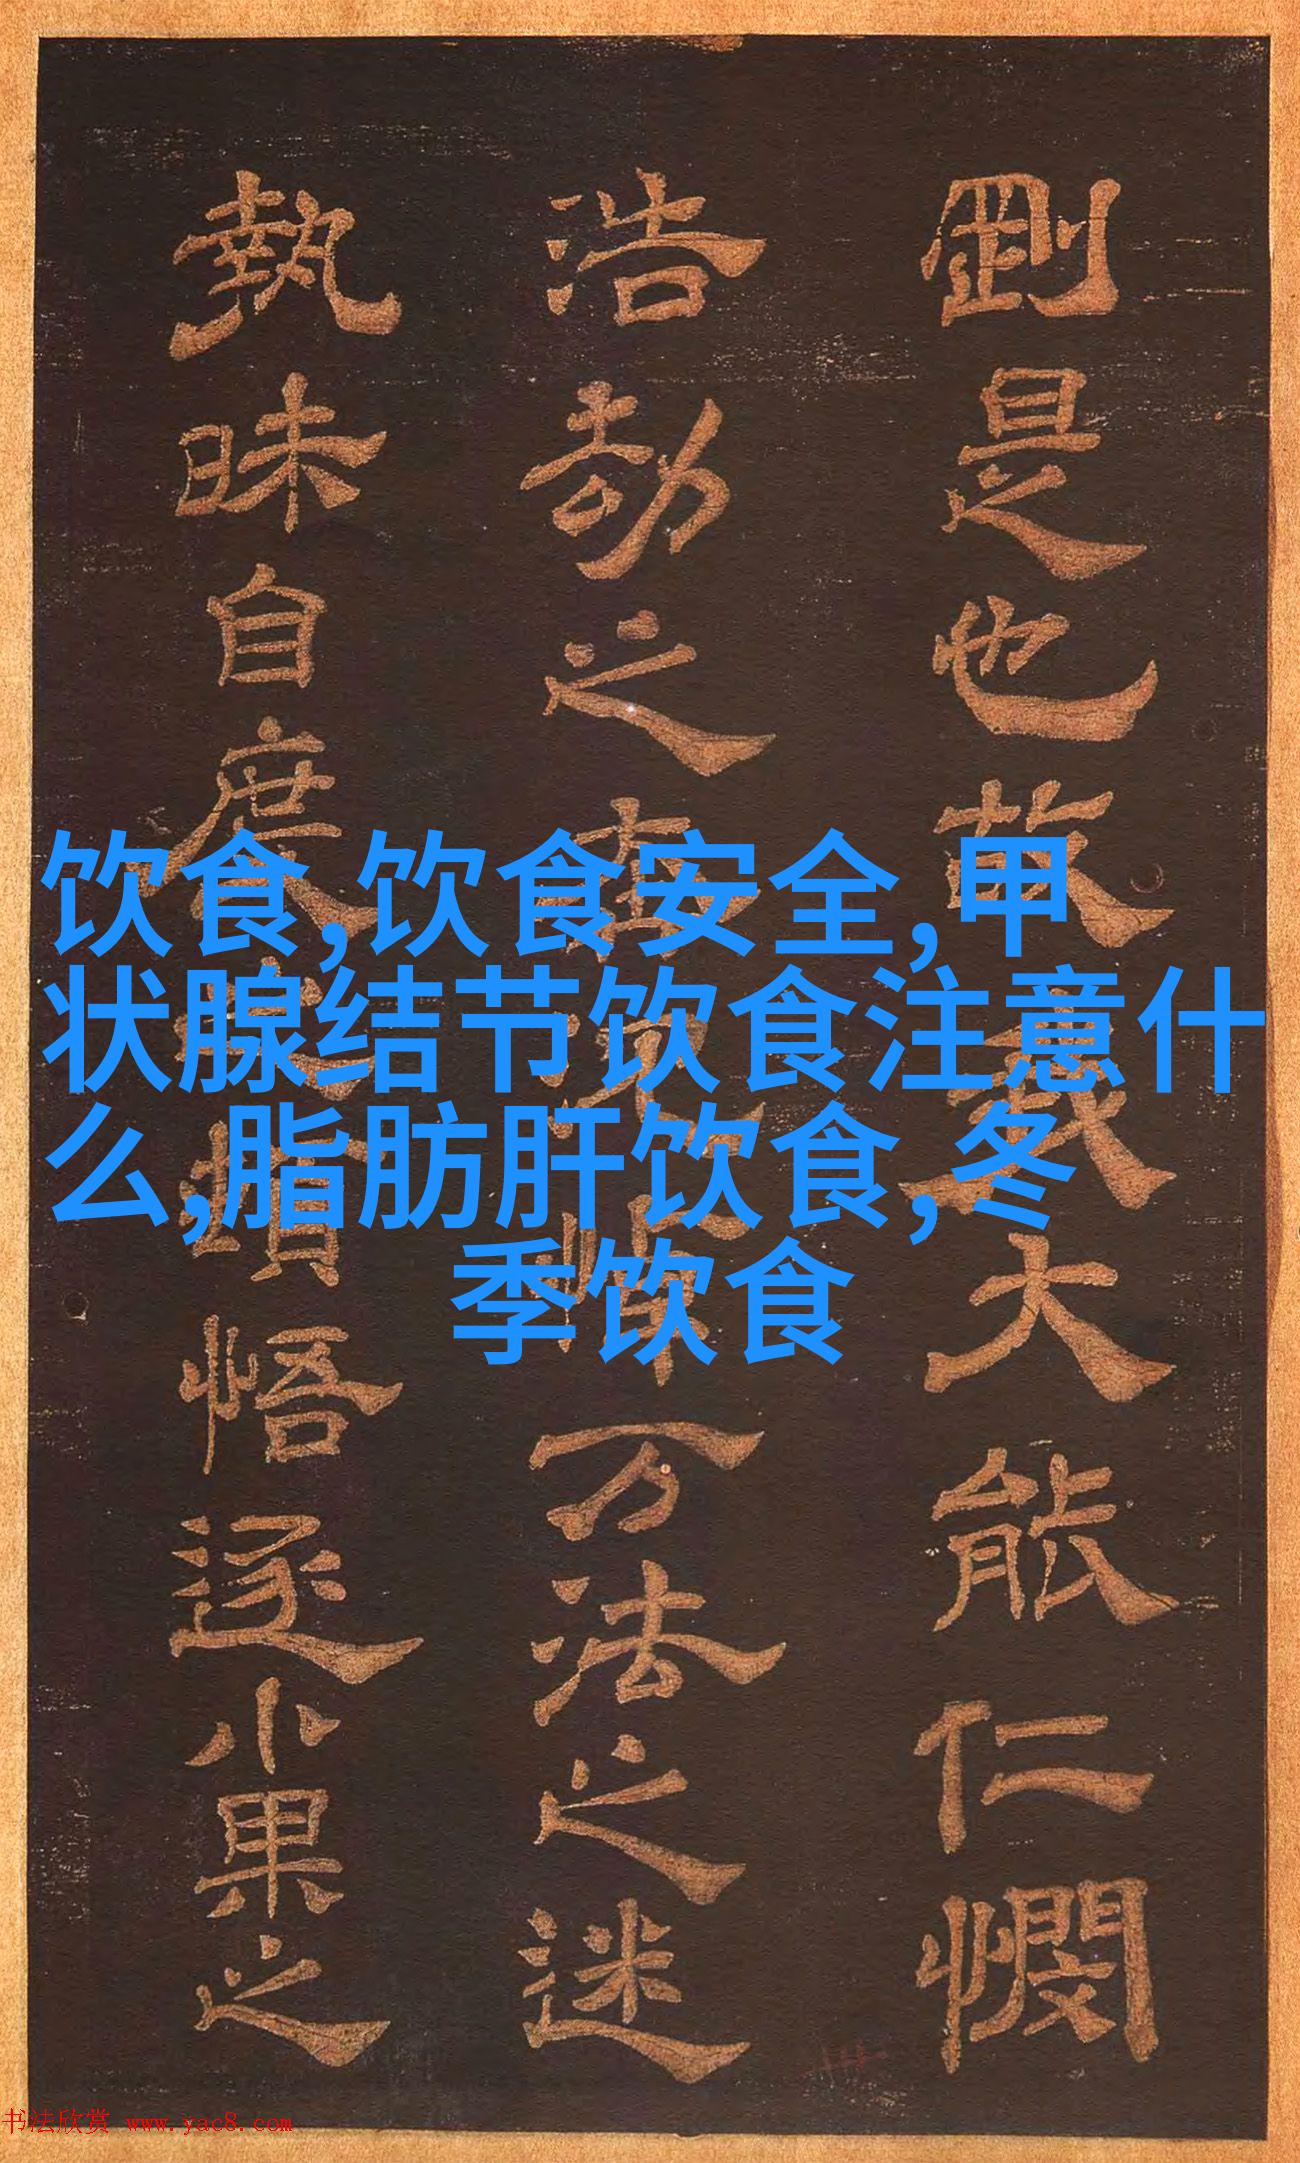 饮食,饮食安全,甲
状腺结节饮食注意什
么,脂肪肝饮食,冬
季饮食
剛是也故我大能仁憫
浩劫之万法之迷
執昧自度頓悟逐小果之
书法欣赏 www.yac8.com